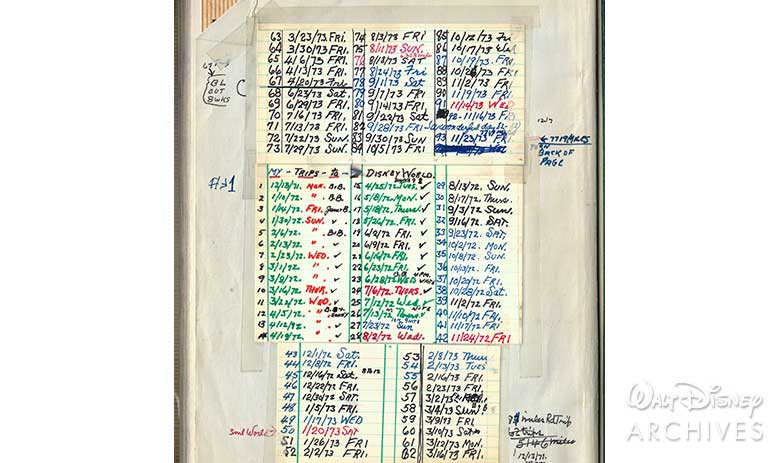 63 3/23/73 Fri. 74 8/3/73 FRI 85 10/12/73 Fri
64 3/30/73 FRI. 75 8/11/73 SUN. 86 10/17/73 Wed.
65 4/6/73 FRI. 76 8/18/73 SAT 87 10/19/73 FRI.
66 4/13/73 FRI. 77 8/24/73 Fri 88 10/26/73 FRI
67 4/20/73 Fri 78 9/1/73 Sat 89 11/2/73 FRI.
68 6/23/73 Sat. 79 9/7/73 FRI 90 11/9/73 FRI.
69 6/29/73 FRI. 80 9/14/73 FRI. 91 11/14/73 WED
70 7/6/73 FRI. 81 9/22/73 Sat. 92- 11/16/73 FRI
71 7/13/73 FRI. 82 9/28/73 FRI
72 7/22/73 SUN. 83 9/30/73 SUN 93 11/23/73 FRI.
73 7/29/73 SUN. 84 10/5/73 FRI.
BL
OUT
BWKS
12/7
7719 MILES
ON
BACK OF
PAGE
#1
MY - TRIPS - to - DISNEY WORLD.
1 12/13/71. MON. B.B. 15 4/25/72 Tues. ✓ 29 8/13/72 SUN.
2 1/10/72. " B.B. 16 5/8/72 MON. ✓ 30 8/17/72 Thurs.
3 1/14/72. FRI. B. 17 5/18/72 Thurs. ✓ 31 9/3/72 Sun.
4 1/30/72. SUN. ✓ 18 5/26/72 FRI. ✓ 32 9/16/72 SAT.
5 2/6/72. " B.B. 19 6/2/72 FRI ✓ 33 9/23/72 SAT.
6 2/13/72. " ✓ 20 6/9/72 FRI. ✓ 34 10/2/72 MON.
7 2/23/72. WED. ✓ 21 6/16/72 FRI ✓ 35 10/8/72 SUN.
8 3/1/72. " ✓ 22 6/23/72 FRI. ✓ 36 10/13/72 FRI.
9 3/8/72. " ✓ 23 6/28/72 WED 37 10/20/72 FRI.
10 3/16/72 THUR. ✓ 24 7/6/72 THURS. ✓ 38 10/28/72 Sat.
11 3/22/72 WED. ✓ 25 7/12/72 Wed. ✓ 39 11/2/72 FRI.
12 4/5/72. " B.B+ 26 7/13/72 Thurs. ✓ 40 11/10/72 FRI
13 4/12/72. " ✓ 27 7/23/72 Sun 41 11/17/72 FRI
14 4/19/72. " ✓ 28 8/2/72 Wed. 42 11/24/72 FRI
43 12/1/72 Sat. 53 2/8/73 Thur
44 12/8/72 FRI. 54 2/13/73 TUES
45 12/16/72 Sat. 55 2/16/73 FRI
46 12/22/72 FRI. 56 2/23/73 FRI.
47 12/30/72 SAT 57 3/2/73 FRI
48 1/5/73 FRI. 58 3/4/73 SUN
49 1/17/73 WED 59 3/9/73 FRI
50 1/20/73 SAT 60 3/10/73 Sat
51 1/26/73 FRI 61 3/12/73 MON.
52 2/2/73 FRI. 62 3/16/73 FRI.
miles Rd Trip
miles
12/13/71.
WALT DISNEY
ARCHIVES